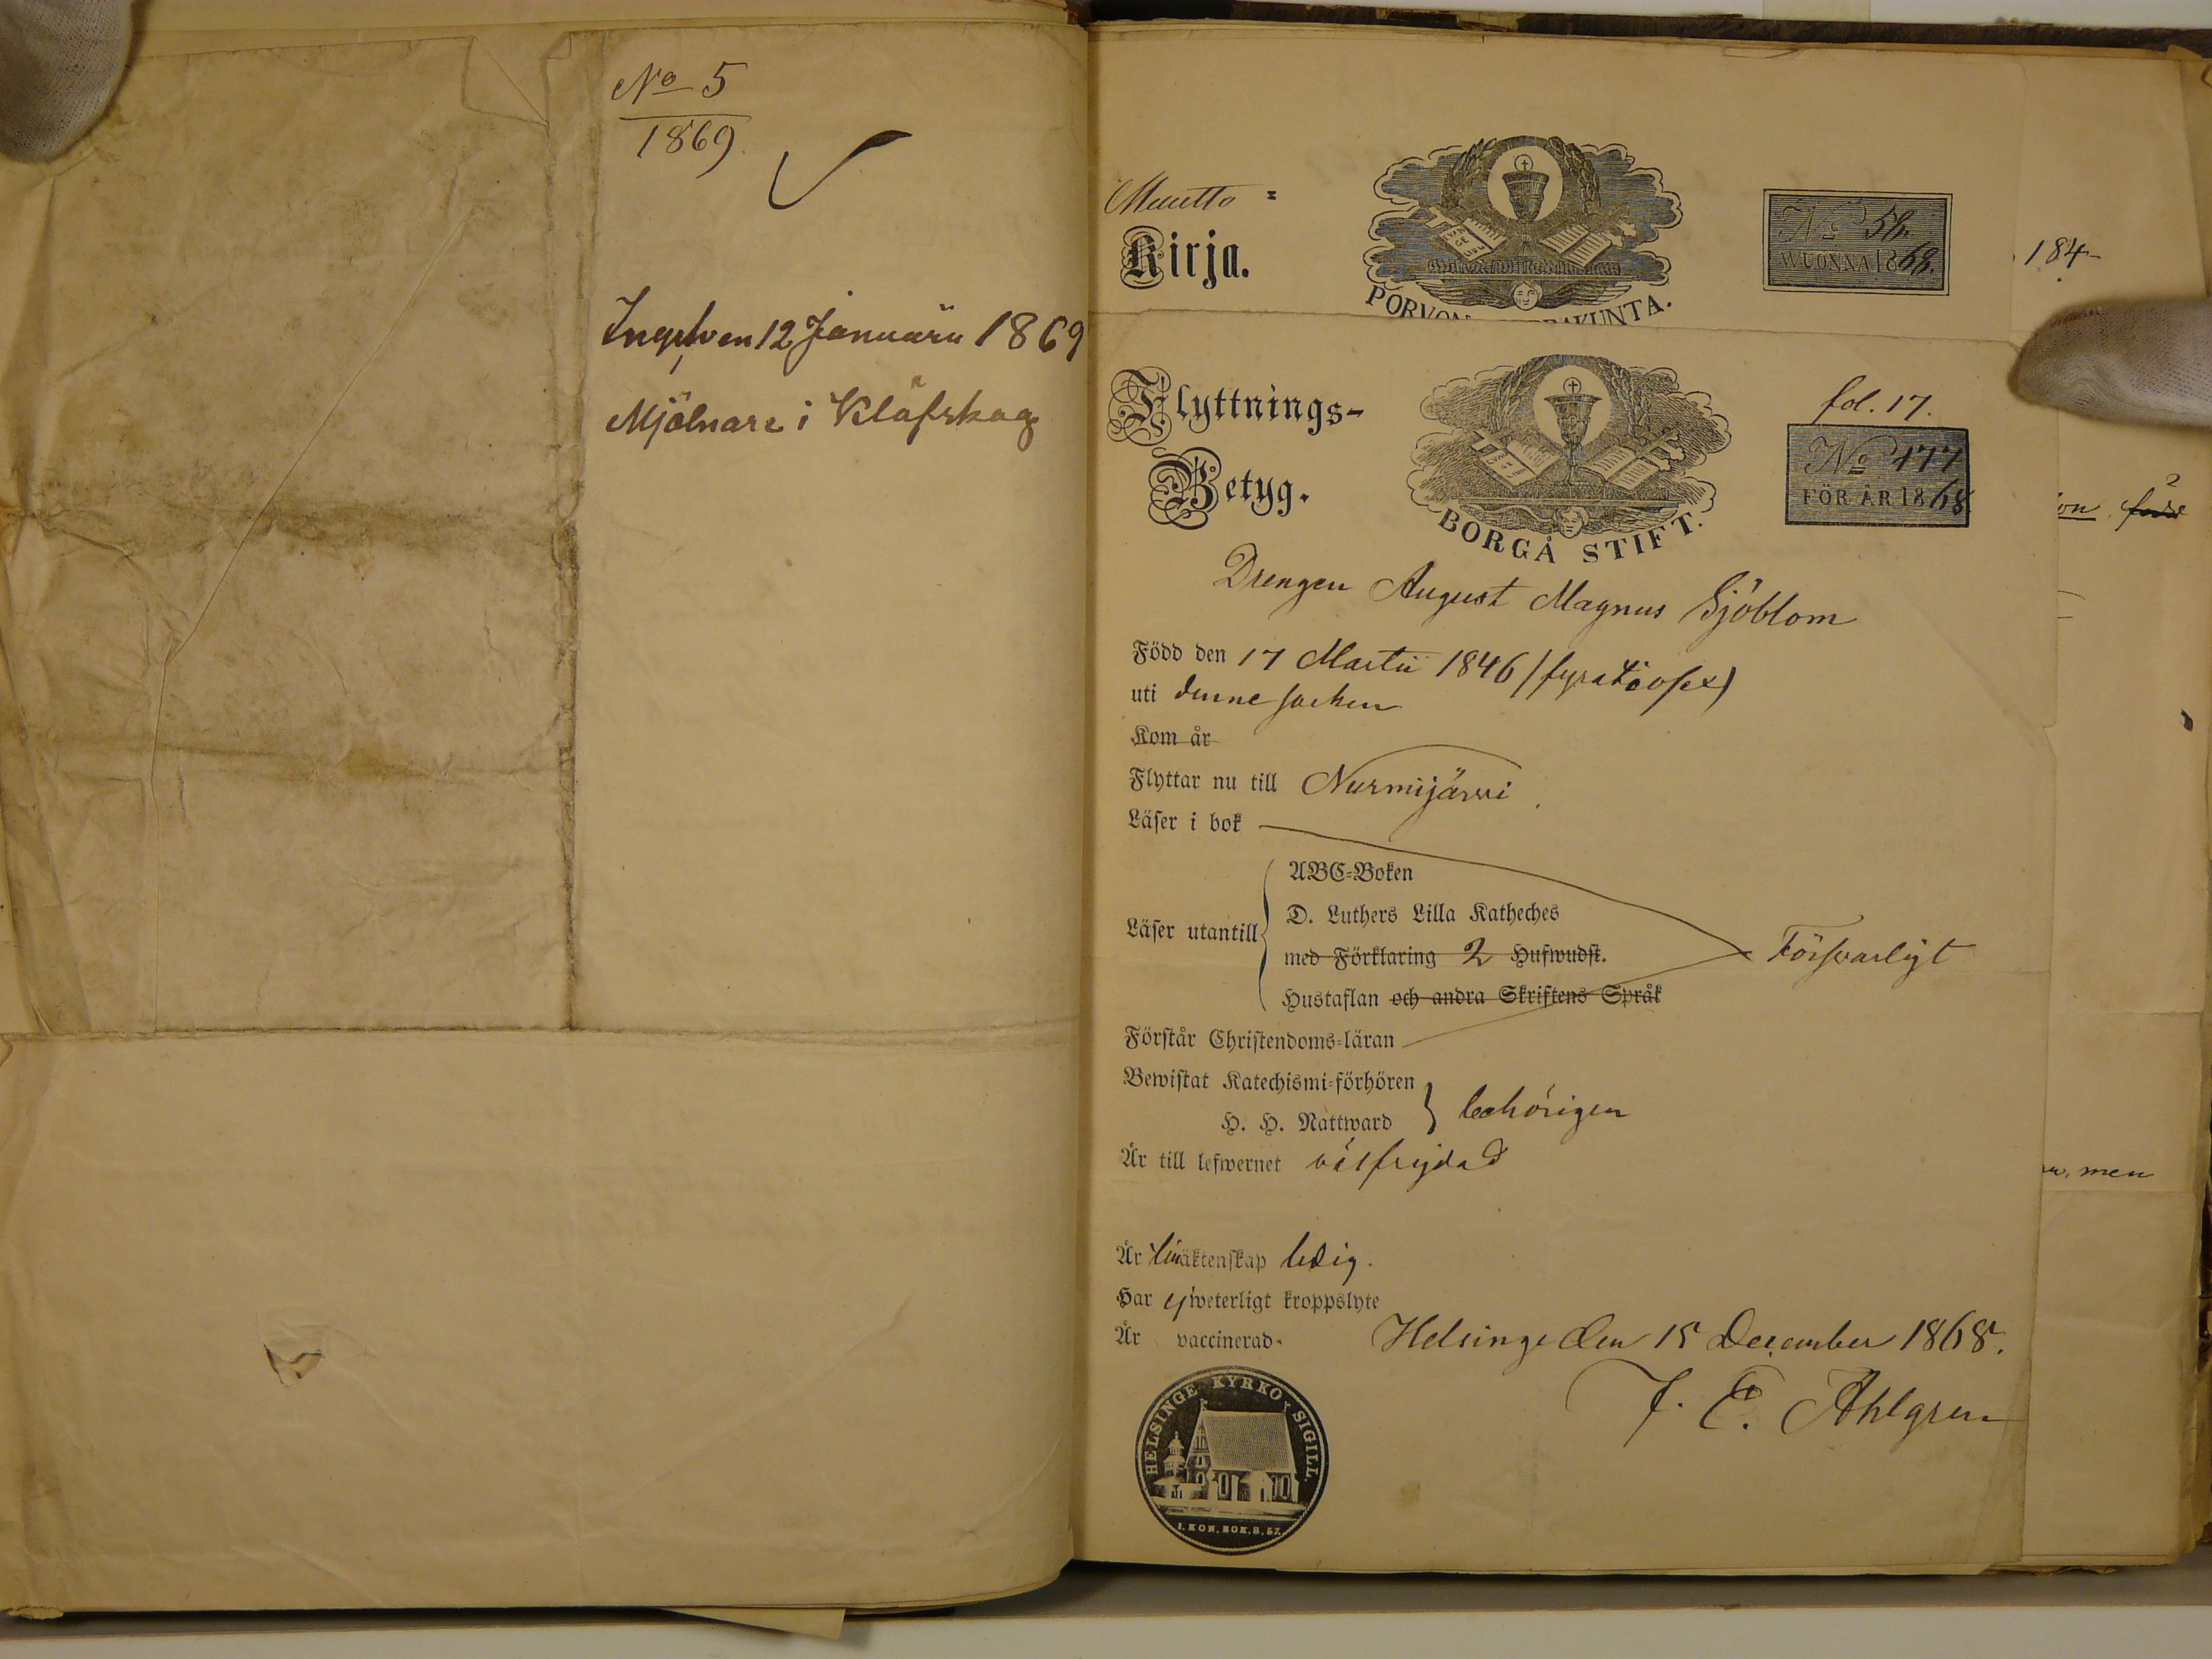 No 5
1869.
Ingifven 12 Januarii 1869
Mjölnare i Kläfskog
Muutto=
Kirja.
PORVON
KUNTA.
No 56.
WUONNA 1868.
184
Flyttnings-
Betyg.
BORGÅ STIFT.
fol. 17.
No 177
FÖR ÅR 1868
Drengen August Magnus Sjöblom
Född den 17 Martii 1846 (fyratiosex)
uti denne socken
Kom år
Flyttar nu till Nurmijärvi
Läser i bok
Läser utantill
ABC-Boken
D. Luthers Lilla Katheches
med Förklaring 2 Hufwudst.
Hustaflan och andra Skriftens Språk
Försvarligt
Förstår Christendoms-läran
Bewistat Katechismi-förhören
H. H. Nattward
behörigen
Är till lefwernet välfrejdad
Är till äktenskap ledig.
Har ej weterligt kroppslyte
Är vaccinerad.
Helsinge den 15 December 1868.
F. E. Ahlgren
HELSINGE KYRKO SIGILL.
I. KON. BOK. 8. 57.
men